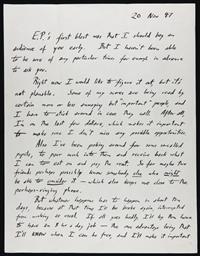 20 Nov 47
E.P.'s first blast was that I should buy an
audience of you early. But I haven't been able
to be sure of any particular time far enough in advance
to ask you.
Right now I would like to figure it out, but it's
not plausible. Some of my scores are being read by
certain more or less annoying but "important" people and
I have to stick around in case they call. After all,
I'm on the last few dollars, which makes it important
to make sure I don't miss any possible opportunities.
Also I've been poking around for some
pupils, to pour work into them, and receive back what
I can to eat on and pay the rent. So far maybe two
friends perhaps possibly know somebody else who might
be able to consider it — which also keeps me close to the
perhaps-ringing phone.
But whatever happens has to happen in about ten
days, because at that time I'll be broke again, interrupted
from working as usual. If all goes badly I'll by then have
to have an 8 hr a day job — the one advantage being that
I'll know when I can be free, and I'll make it important